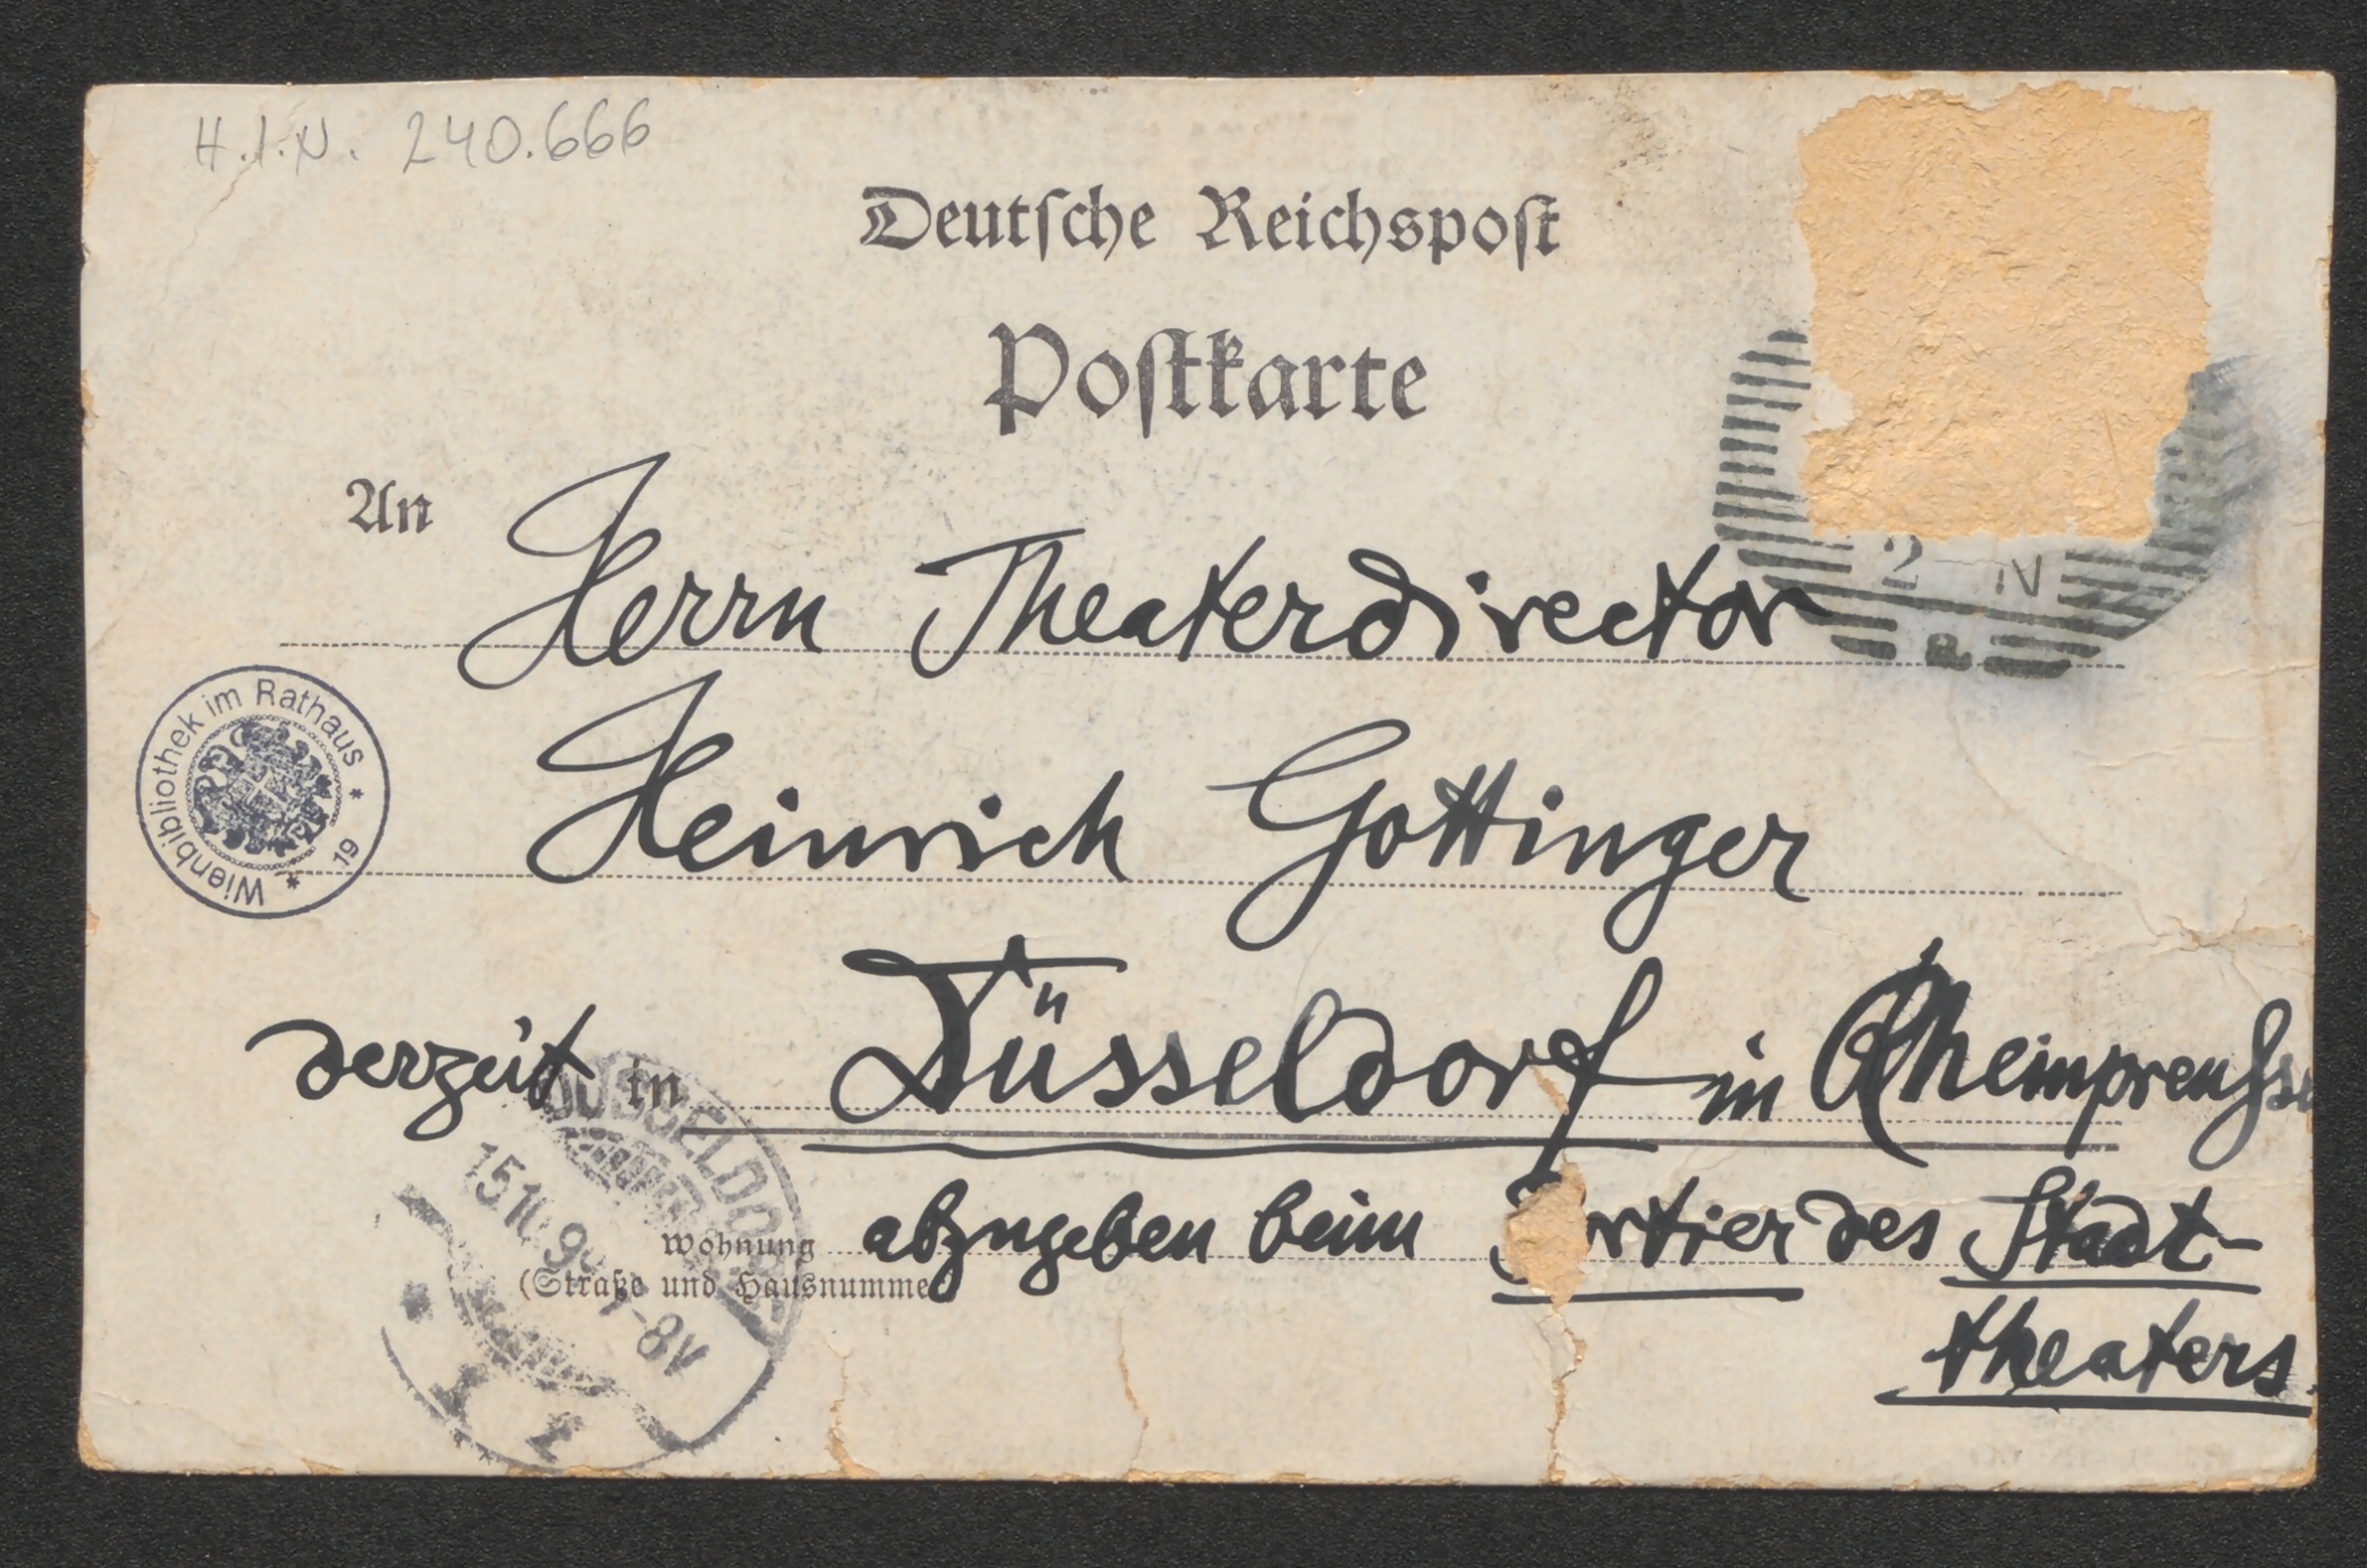 H.I.N. 240.666
Deutſche Reichspoſt
Poſtkarte
An Herrn Theaterdirector
Heinrich Gottinger
Wienbibliothek im Rathaus * 19 *
derzeit in Düsseldorf in Rheinpreußse
DÜSSELDORF
15 10 9
7-8V
1 t
Wohnung abzugeben beim Portier des Stadt-
(Straße und Hausnummer
theaters.
2 N
a